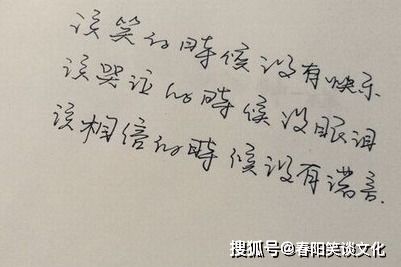 该笑的時候没有快乐
该哭泣的時候没眼泪
该相信的時候没有诺言.
搜狐号@春阳笑谈文化